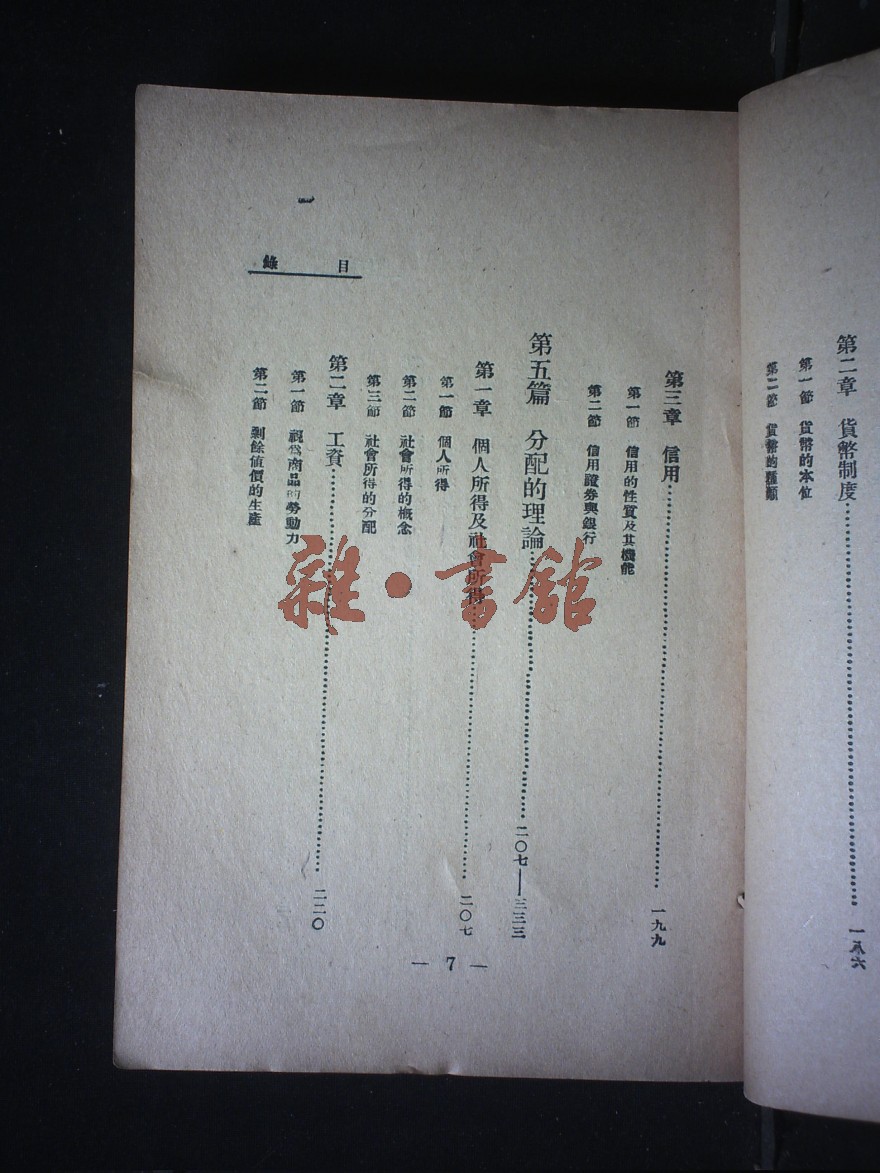 第二章　貨幣制度……一八六
第一節　貨幣的本位
第二節　貨幣的種類
目錄
第三章　信用……一九九
第一節　信用的性質及其機能
第二節　信用證券與銀行
第五篇　分配的理論……二〇七——三三三
第一章　個人所得及社會所得……二〇七
第一節　個人所得
第二節　社會所得的概念
第三節　社會所得的分配
第二章　工資……二二〇
第一節　視為商品的勞動力
第二節　剩餘値價的生產
— 7 —
雜·書館